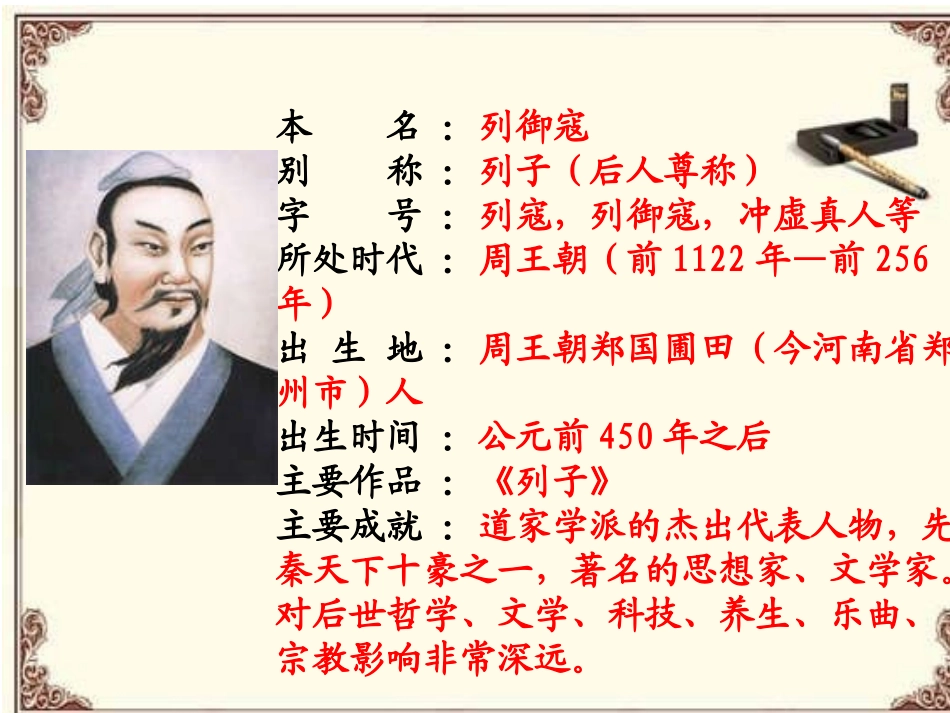 本 名 ： 列御寇
别 称 ： 列子（后人尊称）
字 号 ： 列寇，列御寇，冲虚真人等
所处时代 ： 周王朝（前 1122 年—前 256
年）
出 生 地 ： 周王朝郑国圃田（今河南省郑
州市）人
出生时间 ： 公元前 450 年之后
主要作品 ： 《列子》
主要成就 ： 道家学派的杰出代表人物，先
秦天下十豪之一，著名的思想家、文学家。
对后世哲学、文学、科技、养生、乐曲、
宗教影响非常深远。